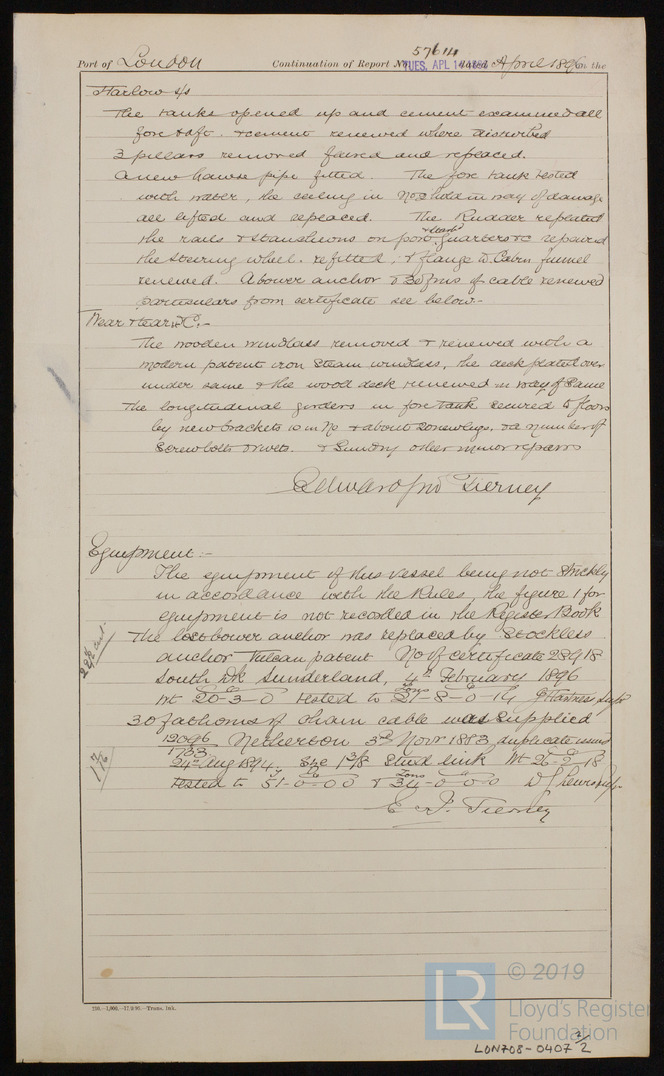 57614
Port of London Continuation of Report No. TUES. APL 14 1896 dated April 1896 on the
Harlow s/s
The tanks opened up and cement examined all
fore & aft. & cement renewed where disturbed
3 pillars removed faired and replaced.
A new hawse pipe fitted. The fore tank tested
with water, the ceiling in No 2 hold in way of damage
all lifted and replaced. The Rudder refitted
the rails & stanchions on port & starbd quarters &c repaired
the steering wheel refitted, & flange to Cabin funnel
renewed. A bower anchor & 30 fms of cable renewed
particulars from certificate see below.-
Wear & tear &C:-
The wooden windlass removed & renewed with a
modern patent iron Steam windlass, the deck plated over
under same & the wood deck renewed in way of same
The longitudinal girders in fore tank secured to floors
by new brackets 12 in No & about new lugs, & a number of
screw bolts & rivets. & Sundry other minor repairs
Edward Jno Tierney
Equipment:-
The equipment of this vessel being not strickly
in accordance with the Rules, the figure 1 for
equipment is not recorded in the Register Book
The lost bower anchor was replaced by Stockless
anchor Vulcan patent No of certificate 28918
South Dk Sunderland, 4th February 1896
Wt 20-3-0 tested to 21-8-0-14 J Hartness Supt
30 fathoms of chain cable was supplied
12096
1783 Netherton 3rd Novr 1883, duplicate issued
24th Aug 1894. Size 1 3/8 Stud link Wt 26-2-18
tested to 51-0-0-0 & 34-0-0-0
E. J. Tierney
1 7/16
710.-1,000.-17/9/95.-Trans. Ink.
LR © 2019
Lloyd's Register
Foundation
LON708-0407 2/2